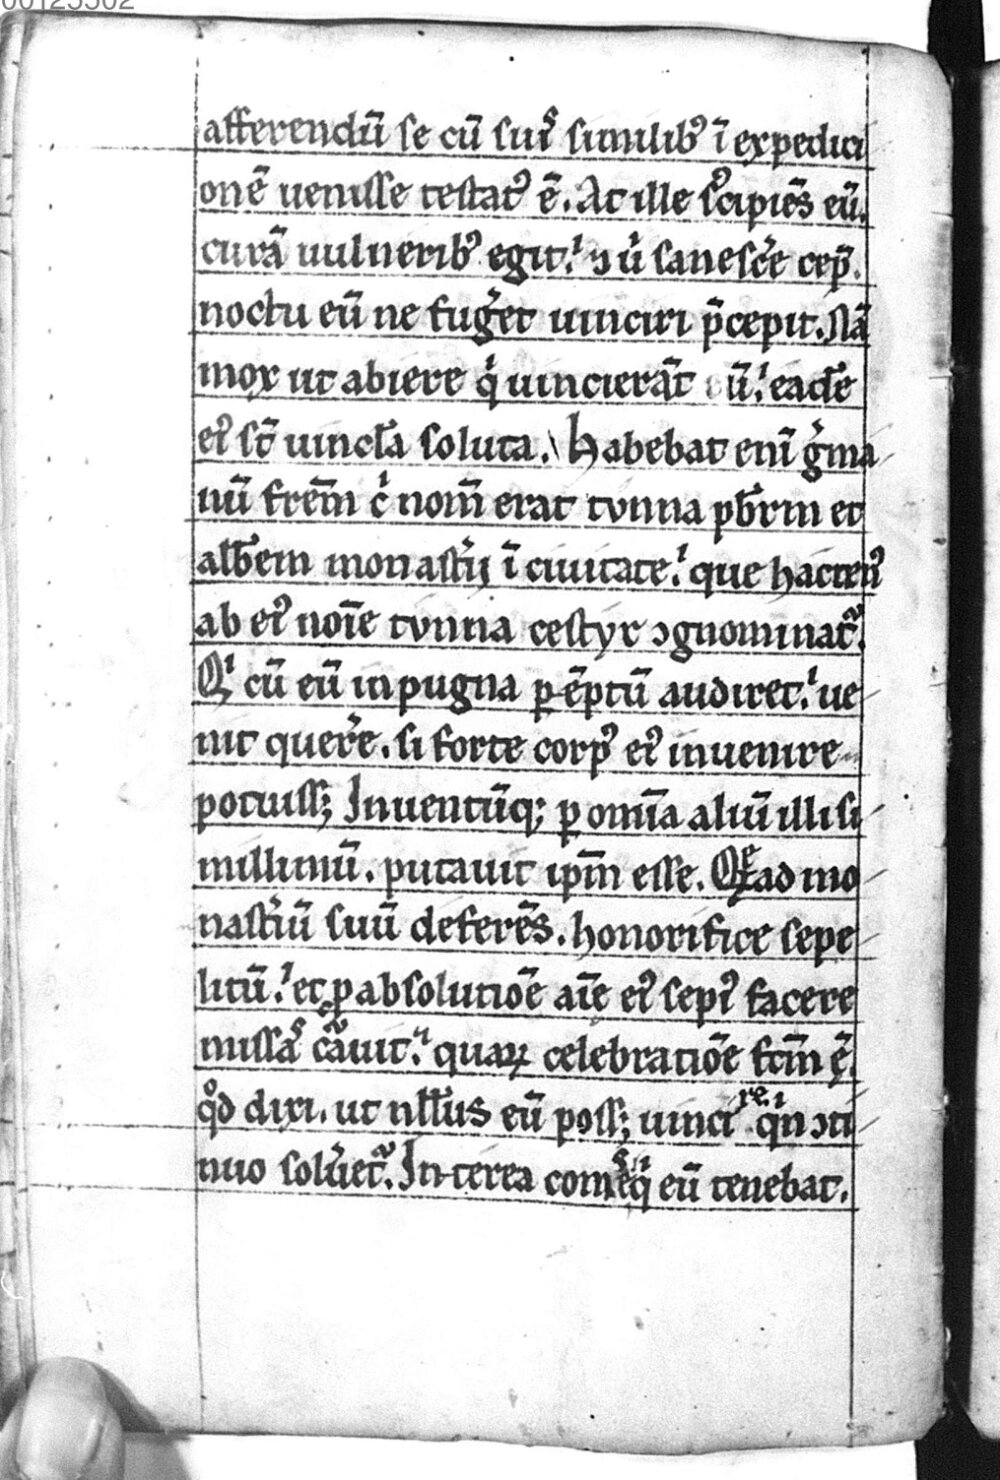 00125502
afferendū se cū suiˢ similibꝰ ī expedici
onē uenisse testatꝰ ē. At ille sꝰcipiēs eū.
curā uulneribꝰ egit. ⁊ u͛ sanesc͛e cep̄.
noctu eū ne fug͛et uinciri p̄cepit. Nā
mox ut abiere qⁱ uincierāt eū. eadē
eiꝰ st̄ uincl̄a soluta. Habebat enī g͛ma
nū frēm cⁱ nom̄ erat tvnna pb̄rm et
alb̄em monast͛ij ī ciuitate. que hactenꝰ
ab eiꝰ noīe tvnna cestyr ꝯgnominat᷑.
Qⁱ cū eū in pugna pēptū audiret. ue
nit quer͛e. si forte corpꝰ eiꝰ inuenire
potuiss; Inuentūq; ꝑ om̄ia aliū illi si
millimū. putauit ip̄m esse. Qᵉ ad mo
nast͛iū suū deferēs. honorifice sepe
litū. et ꝓ absolutiōe aīe eiꝰ sepꝰ facere
missāˢ cᷓuit. quaꝝ celebratiōe fcm̄ ē.
qᵒd dixi. ut nll̄us eū poss; uinciʳᵉ qⁱn ꝯti
nuo solu͛et᷑. Interea comeˢ qⁱ eū tenebat.